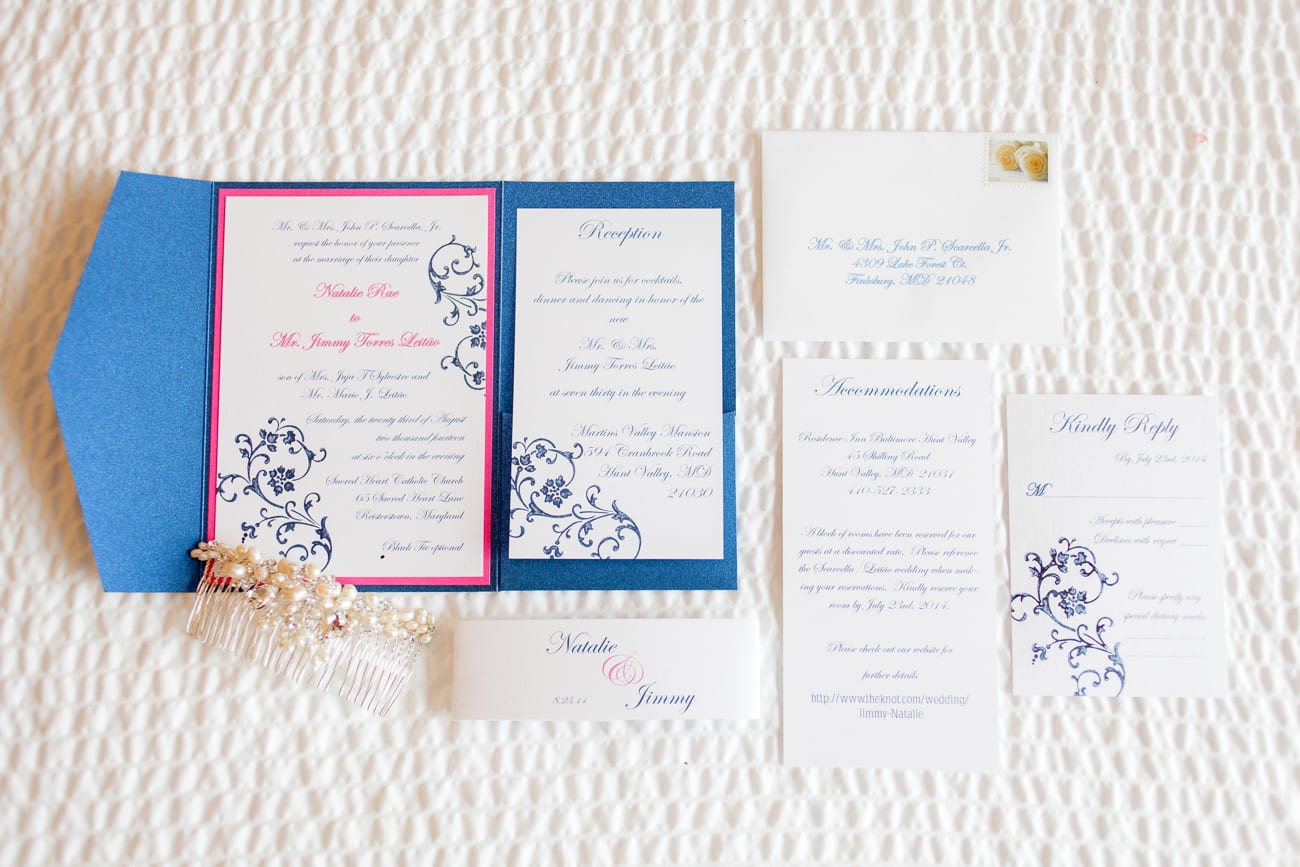 Mr. & Mrs. John P. Scarcella, Jr.
request the honor of your presence
at the marriage of their daughter
Natalie Rae
to
Mr. Jimmy Torres Leitão
son of Mrs. Juju T Sylvestre and
Mr. Mario J. Leitão
Saturday, the twenty third of August
two thousand fourteen
at six o'clock in the evening
Sacred Heart Catholic Church
65 Sacred Heart Lane
Reisterstown, Maryland
Black Tie optional
Reception
Please join us for cocktails,
dinner and dancing in honor of the
new
Mr. & Mrs.
Jimmy Torres Leitão
at seven thirty in the evening
Martins Valley Mansion
594 Cranbrook Road
Hunt Valley, MD
21030
Natalie
&
Jimmy
8.23.14
Mr. & Mrs. John P. Scarcella Jr.
4309 Lake Forest Ct.
Finksburg, MD 21048
USA
Accommodations
Residence Inn Baltimore Hunt Valley
45 Shilling Road
Hunt Valley, MD 21031
410-527-2333
A block of rooms have been reserved for our
guests at a discounted rate. Please reference
the Scarcella / Leitão wedding when mak-
ing your reservations. Kindly reserve your
room by July 23rd, 2014.
Please check out our website for
further details
http://www.theknot.com/wedding/
Jimmy-Natalie
Kindly Reply
By July 23rd, 2014
M
Accepts with pleasure
Declines with regret
Please specify any
special dietary needs: